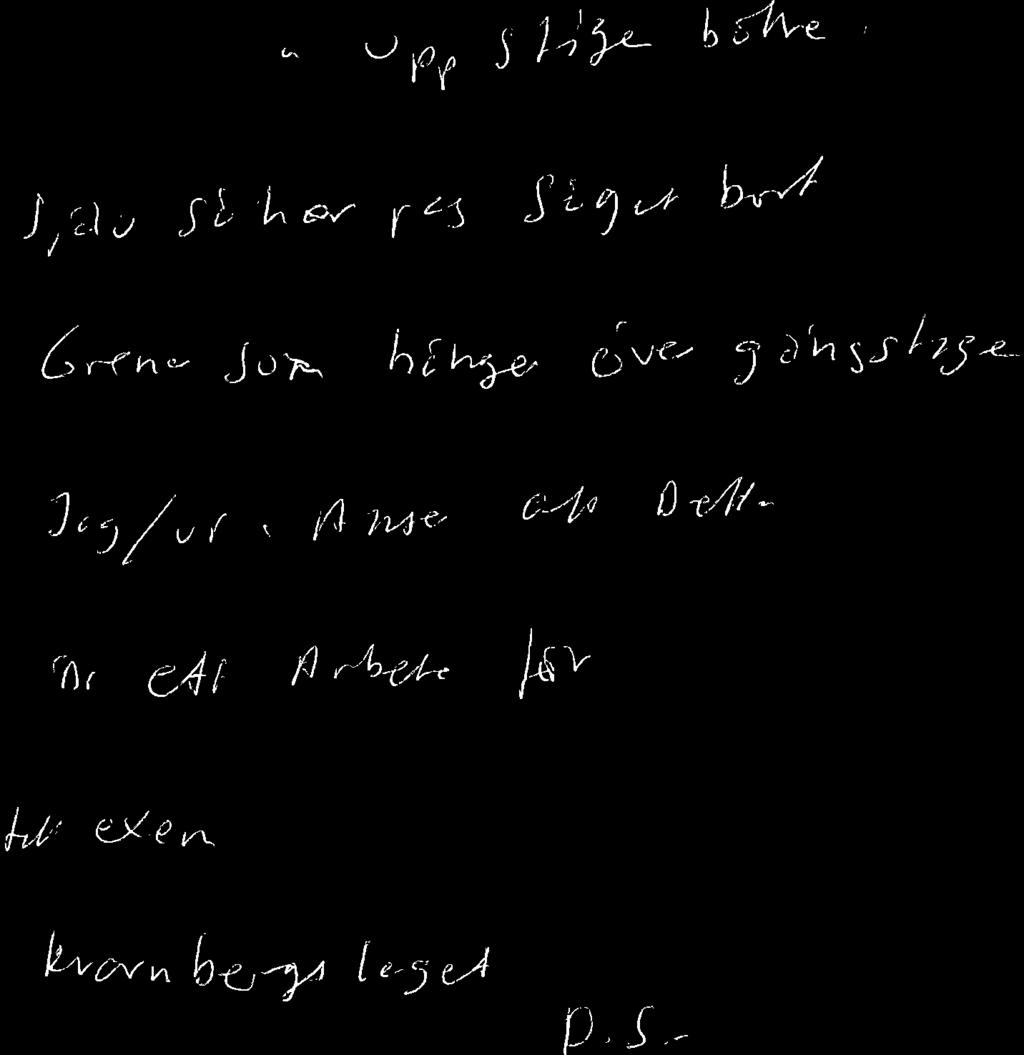 upp stige bättre.
själv så har jag sågat bort
Grena som hänger över gångstige
Jag/vi Anser att Detta
är ett Arbete för
till exen
kvarnbergslaget
P.S.